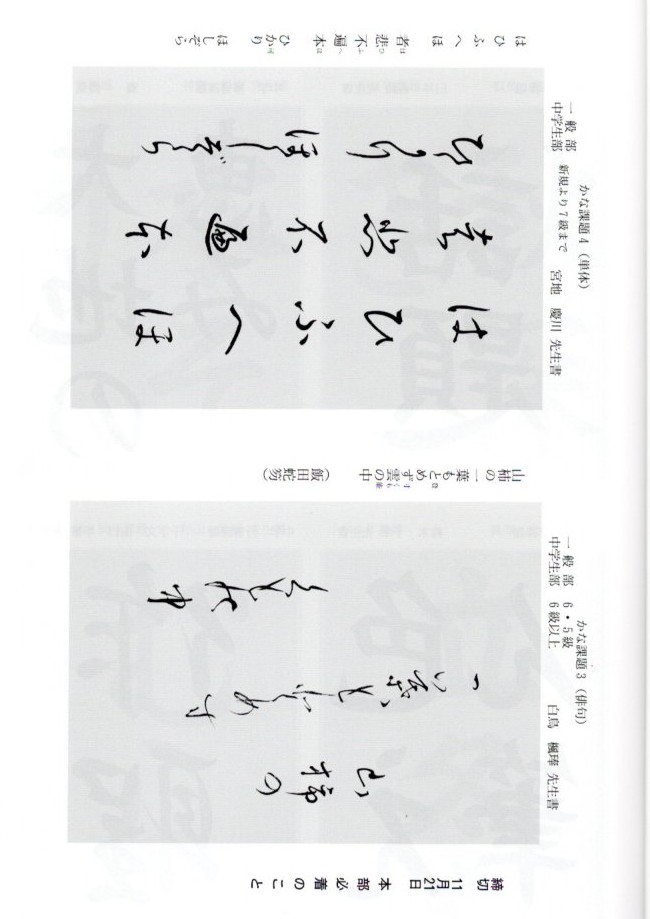 かな課題4（単体）
一般部
中学生部　新規より7級まで
宮地　慶川　先生書
はひふへほ
者悲不遍本
ひかり
ほしぞら
はひふへほ　者悲不遍本　ひかり　ほしぞら
かな課題3（俳句）
一般部　6・5級
中学生部　6級以上
先生書
山柿の
山柿の一葉もとめず雲の中　（飯田蛇笏）
締切　11月21日　本部必着のこと